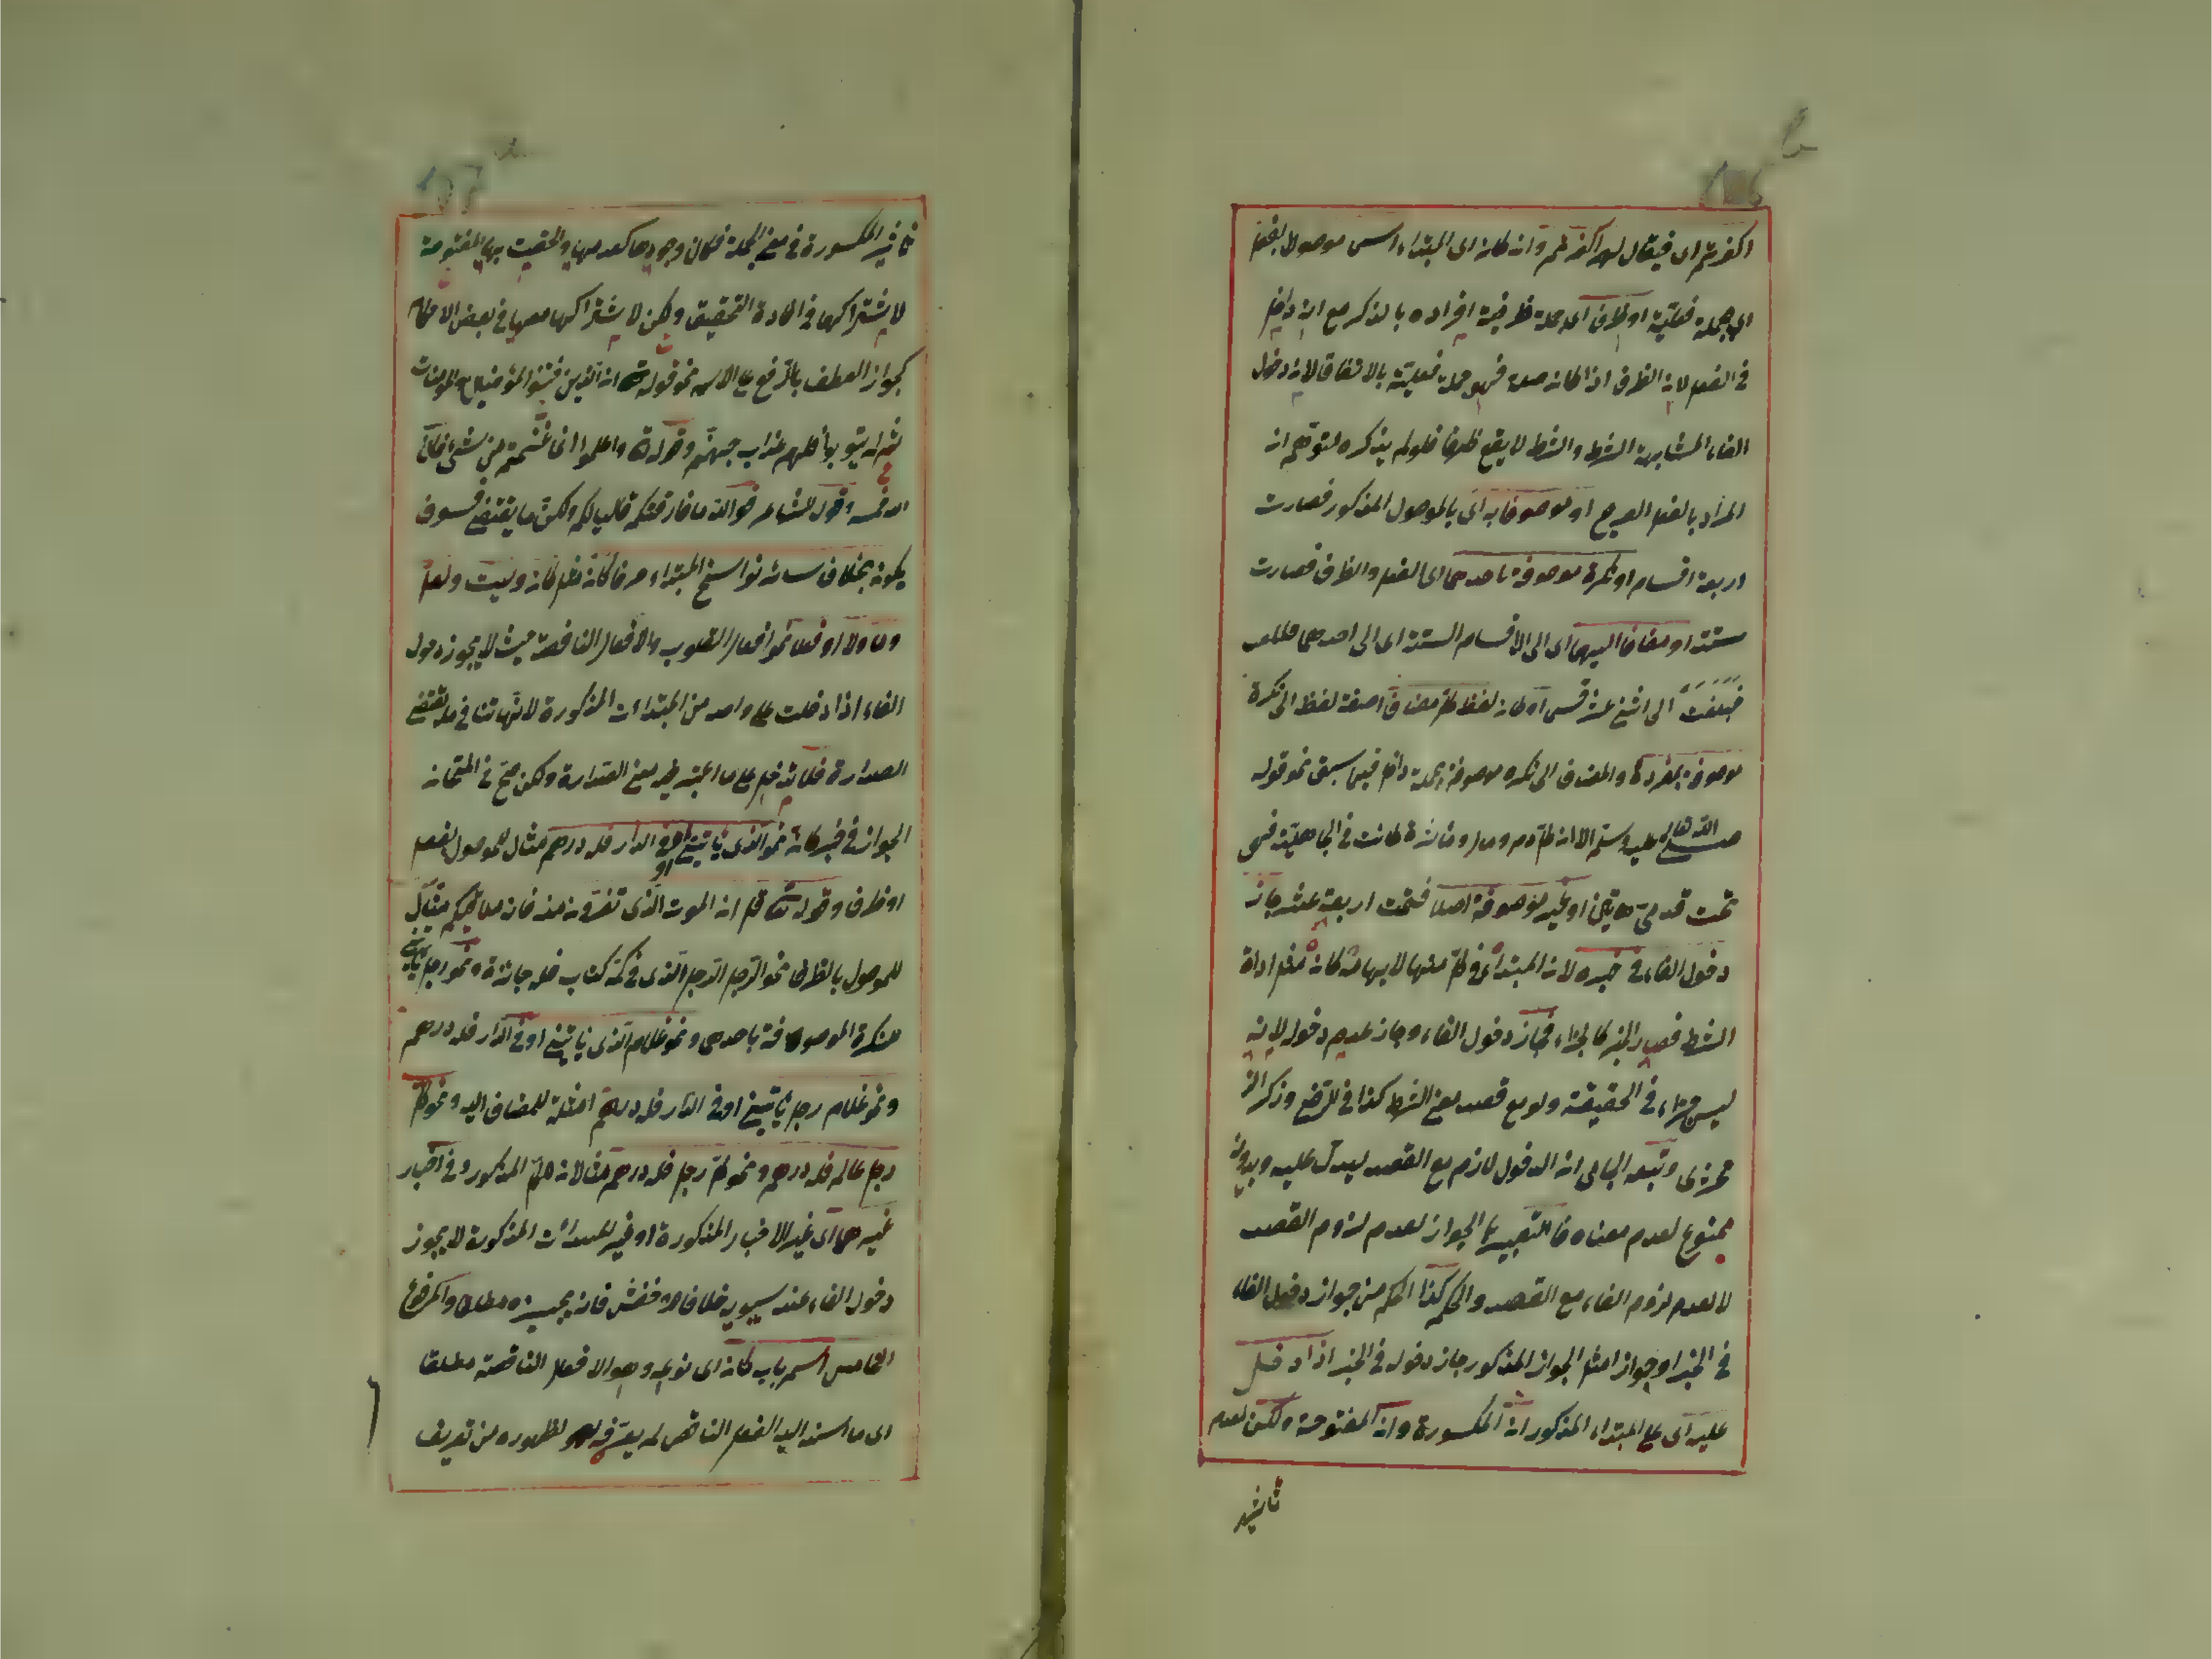 اكفرتم اى فيقال لهم اكفرتم وان كان اى المبتداء اسم موصولا بفعل
اى جملة فعلية او ظرف اى جملة ظرفية افراده بالذكر مع انه داخل
فى الفعل لان الظرف اذا كان صلة فهو جملة فعلية بالاتفاق لانه دخل
الفاء لمشابهة الشرط والشرط لا يقع ظرفا فلو لم يذكره لتوهم ان
المراد بالفعل الصريح او موصوفا به اى بالموصول المذكور فصارت
اربعة اقسام او نكرة موصوفة باحدهما اى الفعل والظرف فصارت
ستة او مضافا اليها اى الى الاقسام الستة اى الى احدهما
فبلغت الى اثنى عشر قسما او كان لفظ كل مضافا صفة لفظ الى نكرة
موصوفة بمفرد والمضاف الى نكره موصوفة بجملة داخل فيما سبق نحو قوله
صلى الله تعالى عليه وسلم الا ان كل دم ومال ومأثرة كانت فى الجاهلية فهى
تحت قدمى هاتين او غير موصوفة اصلا فتمت اربعة عشر جاز
دخول الفاء فى خبره لان المبتدأ فى كل منها لابهامه كان مثل اداة
الشرط فصار الخبر كالجزاء فجاز دخول الفاء وجاز عدم دخوله لانه
ليس جزاء فى الحقيقة ولو مع قصد معنى الشرط كذا فى الرضى وذكر
وتبعه البالى ان الدخول لازم مع القصد ليدل عليه وبدونه
ممنوع لعدم معناه فالتعبير بالجواز لعدم لزوم القصد
لا لعدم لزوم الفاء مع القصد والحكم كذا الحكم من جواز دخول الفاء
فى الخبر او جواز امثل الجواز المذكور جاز دخوله فى الخبر اذا دخل
عليه اى على المبتداء المذكور ان المكسورة وان المفتوحة ولكن لعدم
تأثير
تأثير المكسورة فى معنى الجملة فكان وجودها كعدمها والحقت بها المفتوحة
لاشتراكها فى افادة التحقيق ولكن لاشتراكها معها فى بعض الاحكام
كجواز العطف بالرفع على الاسم نحو قوله تع ان الذين فتنوا المؤمنين والمؤمنات
ثم لم يتوبوا فلهم عذاب جهنم وقوله تع واعلموا انما غنمتم من شئ فان
لله خمسه وقول الشاعر فوالله ما فارقتكم قاليا لكم ولكن ما يقتضى فسوف
يكون بخلاف سائر نواسخ المبتداء حرفا كان مثل كان وليت ولعل
وما ولا او فعلا نحو افعال القلوب والافعال الناقصة حيث لا يجوز دخول
الفاء اذا دخلت على واحد من المبتداءت المذكورة لانها تنافى ما تقتضى
الصدارة فلا تدخل على ما اعتبر فيه معنى الصدارة ولكن صح فى المتحان
الجواز فى خبر كان نحو الذى يأتينى او فى الدار فله درهم مثال للموصول بفعل
او ظرف وقوله تعالى قل ان الموت الذى تفرون منه فانه ملاقيكم مثال
للموصول بالظرف نحو الرجل الرجل الذى فى كمه كتاب فله جائزة ونحو رجل يأتينى
نكرة الموصوفة باحدهما ونحو غلام الذى يأتينى او فى الدار فله درهم
ونحو غلام رجل يأتينى او فى الدار فله درهم امثلة للمضاف اليه ونحو كل
رجل عالم فله درهم ونحو كل رجل فله درهم مثالان لكل المذكور وفى اخبار
غيرها اى غير الاخبار المذكورة او غير المبتدائت المذكورة لا يجوز
دخول الفاء عند سيبويه خلافا لاخفش فانه يجيزه مطلقا والمرفوع
الخامس اسم باب كان اى نوعه وهو الافعال الناقصة مطلقا
اى ما اسند اليه الفعل الناقص لم يعرفه لظهوره من تعريف